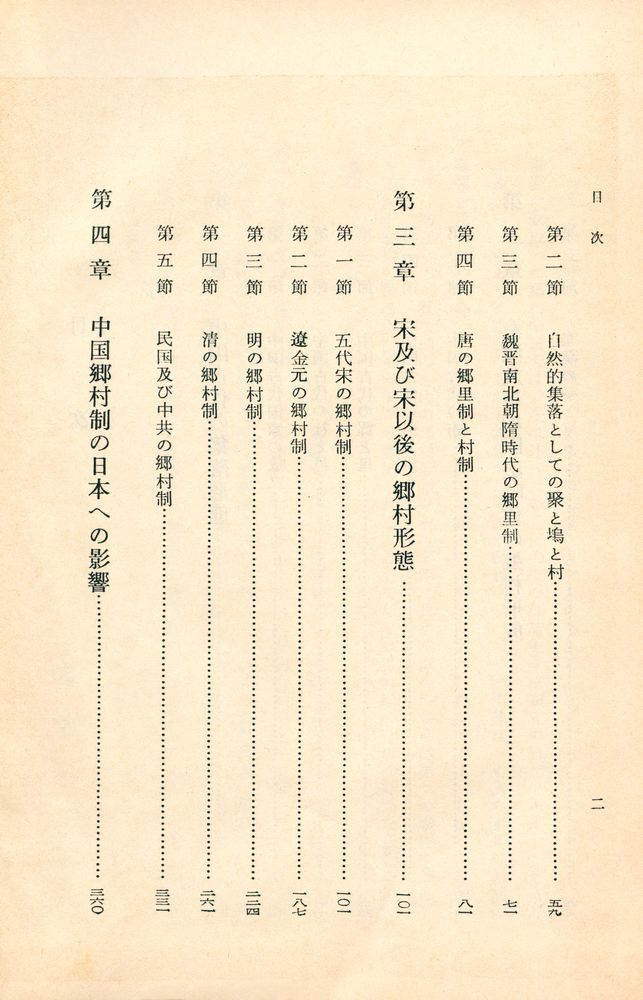 目次
二
第二節 自然的集落としての聚と塢と村 五九
第三節 魏晋南北朝隋時代の郷里制 七一
第四節 唐の郷里制と村制 八一
第三章 宋及び宋以後の郷村形態 一〇一
第一節 五代宋の郷村制 一〇一
第二節 遼金元の郷村制 一八七
第三節 明の郷村制 二二四
第四節 清の郷村制 二六一
第五節 民国及び中共の郷村制 三三一
第四章 中国郷村制の日本への影響 三六〇